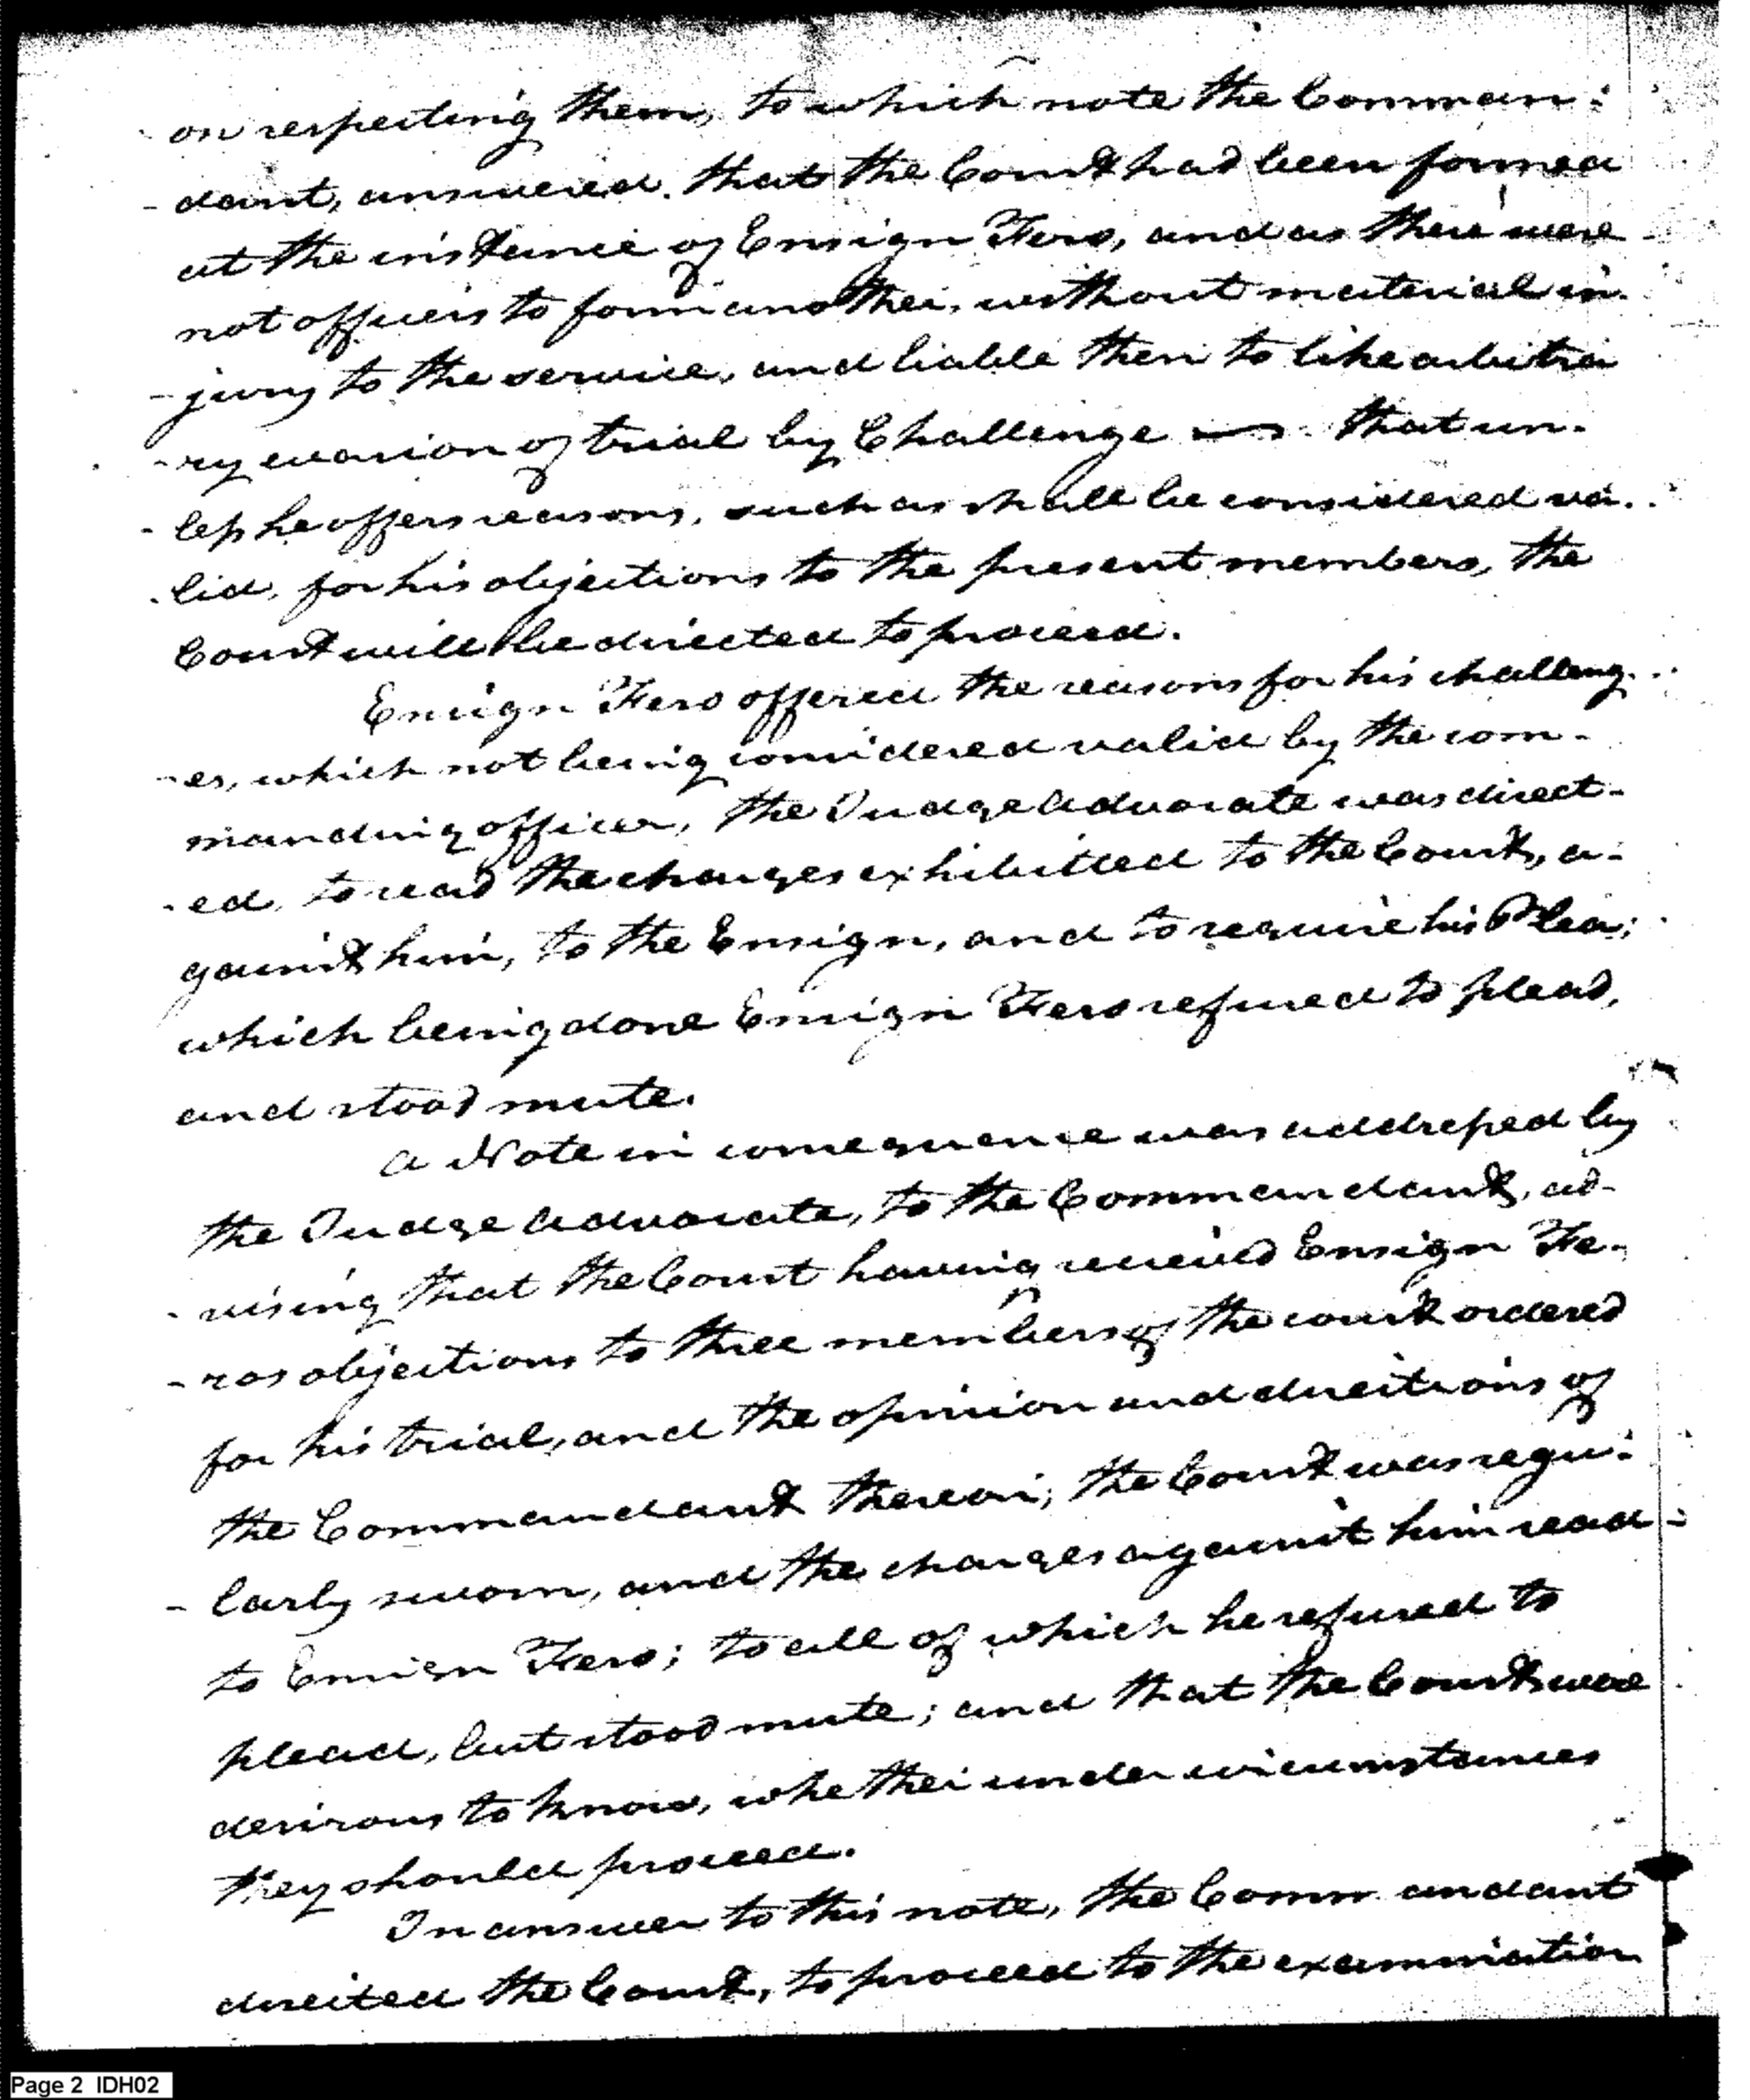 on respecting them, to which note the Comman-
-dant, answered. that the Court had been formed
at the instance of Ensign Fero, and as there were
not officers to form another, without material in-
-jury to the service, and liable then to like arbitra
-ry evasion of trial by Challenge — that un-
-less he offers reasons, such as shall be considered va-
-lid, for his objections to the present members, the
Court will be directed to proceed.
Ensign Fero offered the reasons for his challeng-
-es, which not being considered valid by the com-
manding officer, the Judge Advocate was direct-
-ed, to read the charges exhibitted to the Court, a-
gainst him, to the Ensign, and to require his Plea;
which being done Ensign Fero refused to plead,
and stood mute.
A Note in consequence was addressed by
the Judge Advocate, to the Commandant, ad-
-vising that the Court having received Ensign Fe-
-ros objections to three members of the court ordered
for his trial, and the opinion and directions of
the Commandant thereon; the Court was regu-
-larly sworn, and the charges against him read-
to Ensign Fero; to all of which he refused to
plead, but stood mute; and that the Court were
desirous to know, whether under circumstances
they should proceed.
In answer to this note, the Commandant
directed the Court, to proceed to the examination
Page 2 IDH02